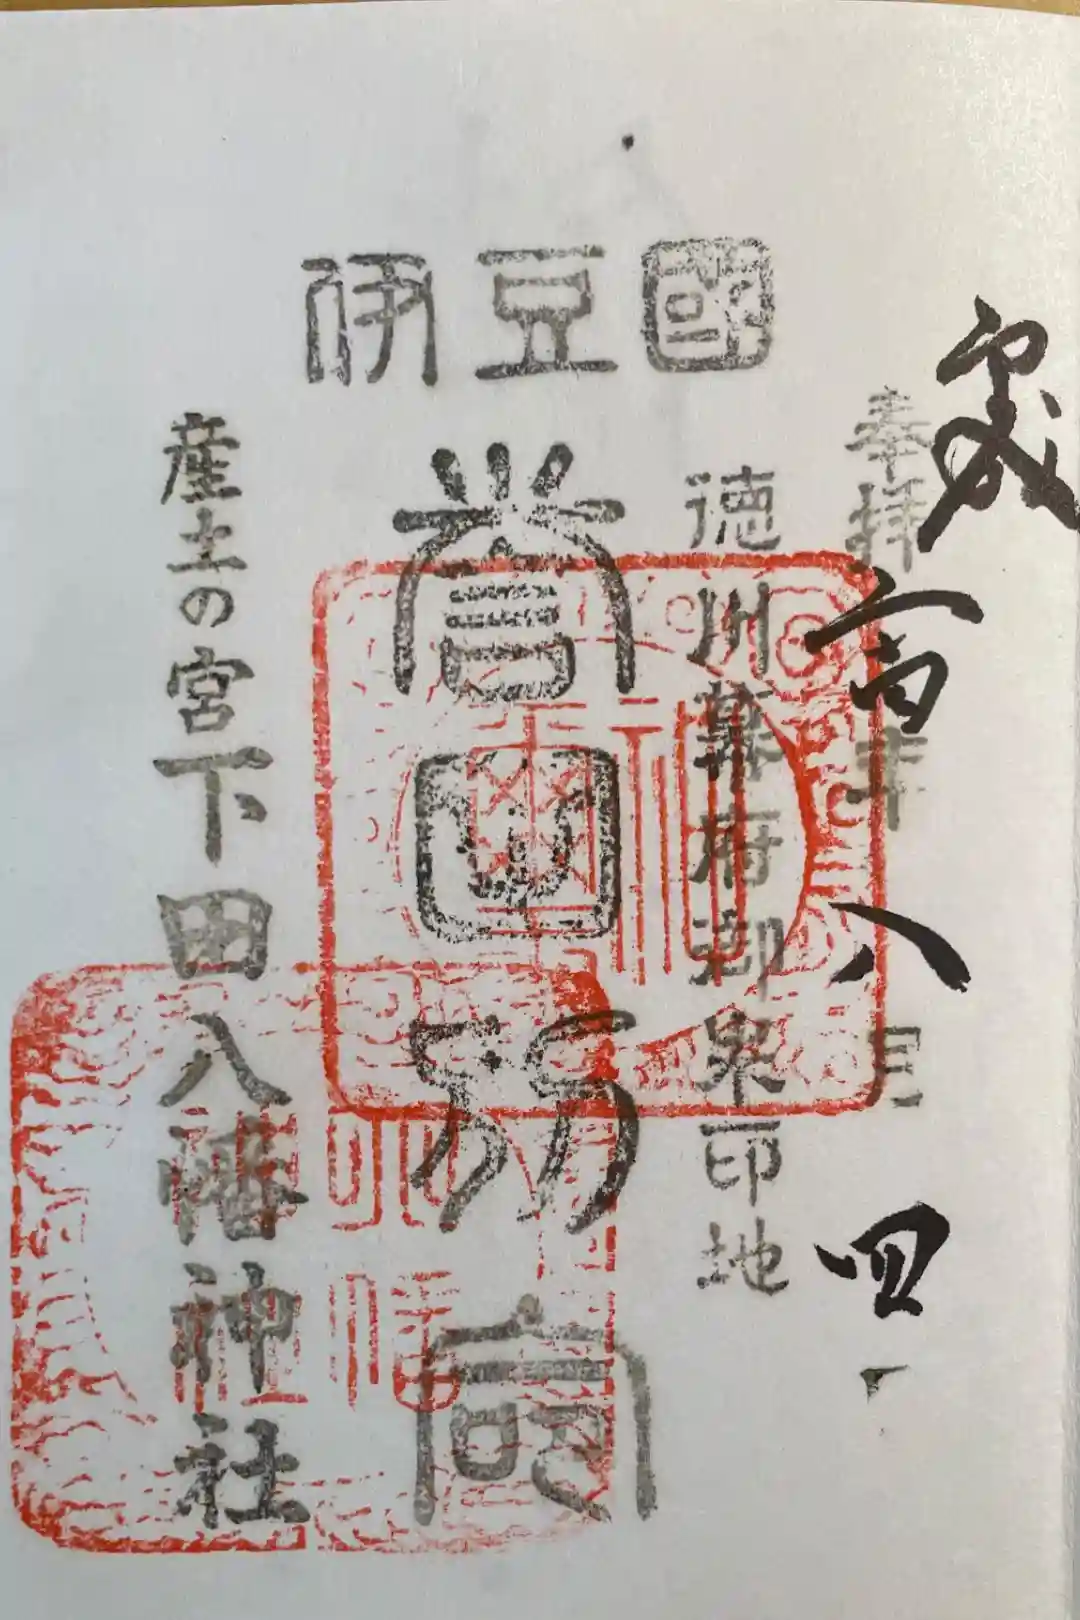 伊豆國
奉拝 年 八月 四
徳川幕府御朱印地
誉田別命
産土の宮下田八幡神社